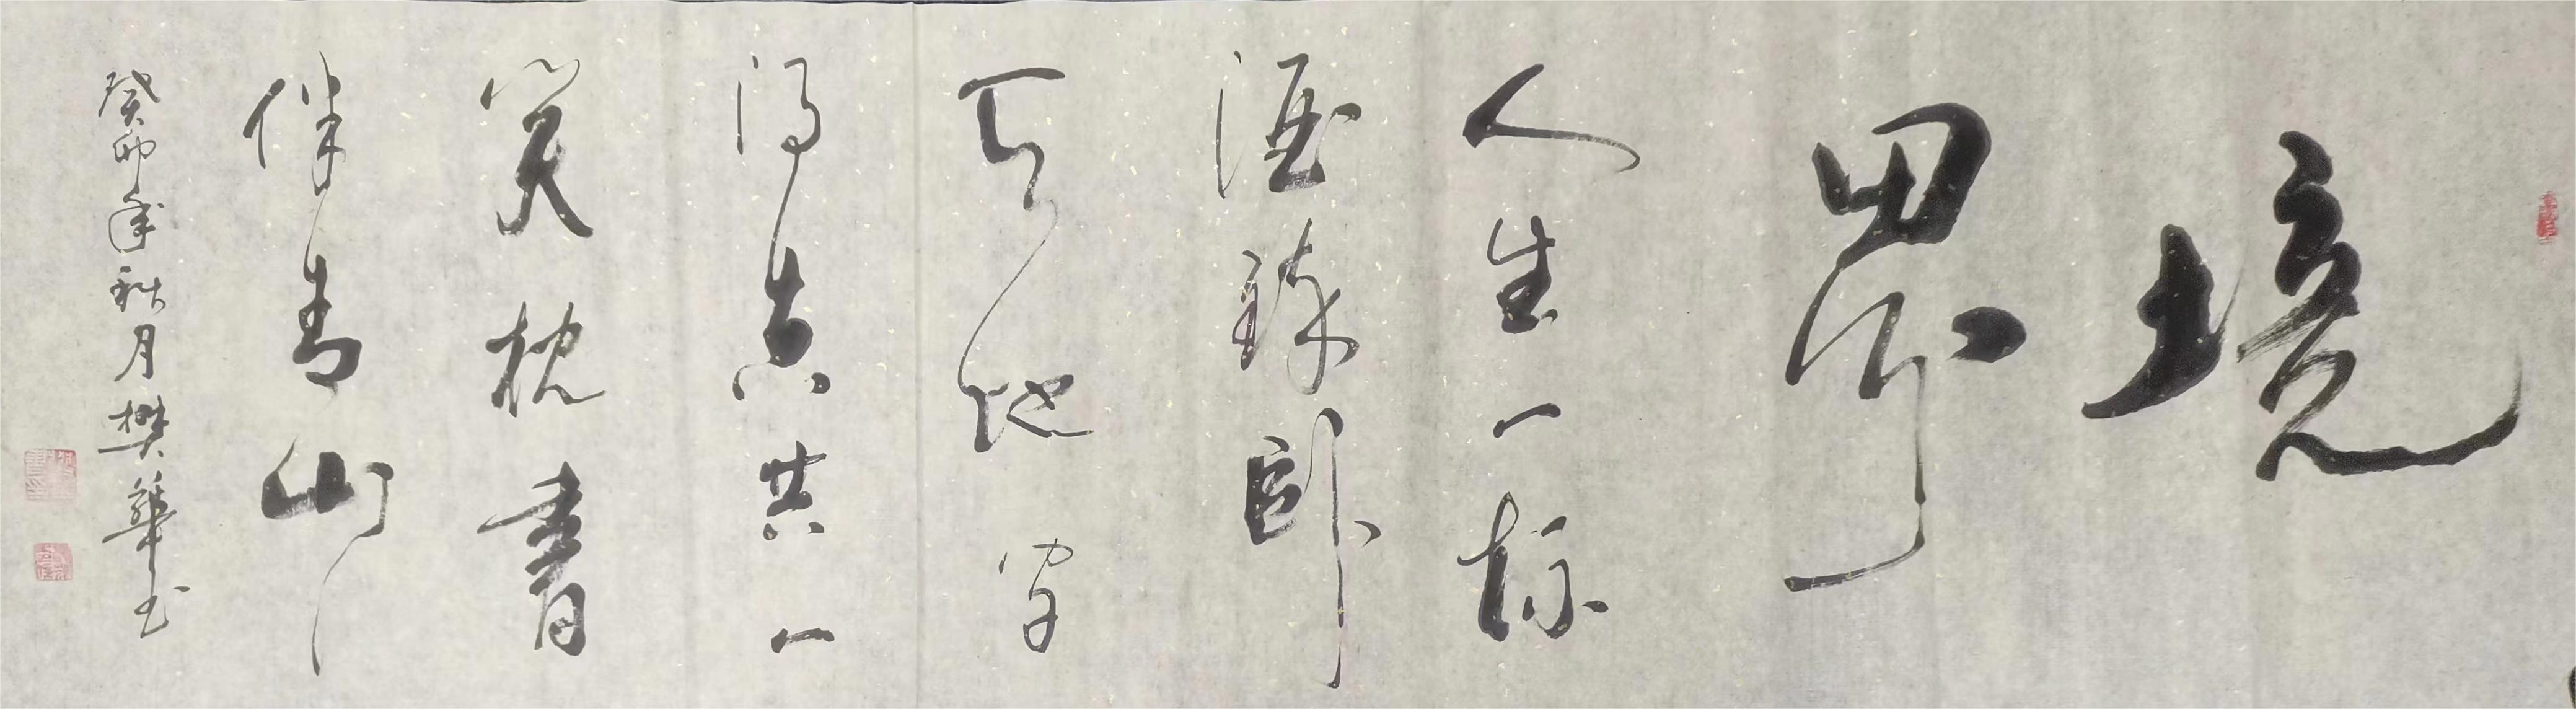 境
界
人生一杯
酒醉卧
天地間
得共一
笑枕書
伴青山
癸卯年秋月樊華书